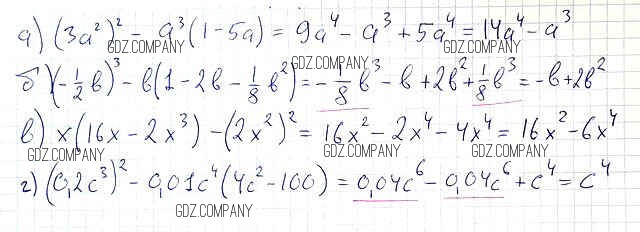 а) (3a²)² - a³(1-5a) = 9a⁴ - a³ + 5a⁴ = 14a⁴ - a³
GDZ.COMPANY GDZ.COMPANY
б) (-1/2 b)³ - b(1-2b-1/8 b²) = -1/8 b³ - b + 2b² + 1/8 b³ = -b + 2b²
GDZ.COMPANY
в) x(16x - 2x³) - (2x²)² = 16x² - 2x⁴ - 4x⁴ = 16x² - 6x⁴
GDZ.COMPANY GDZ.COMPANY GDZ.COMPANY
г) (0,2c³)² - 0,01c⁴(4c² - 100) = 0,04c⁶ - 0,04c⁶ + c⁴ = c⁴
GDZ.COMPANY